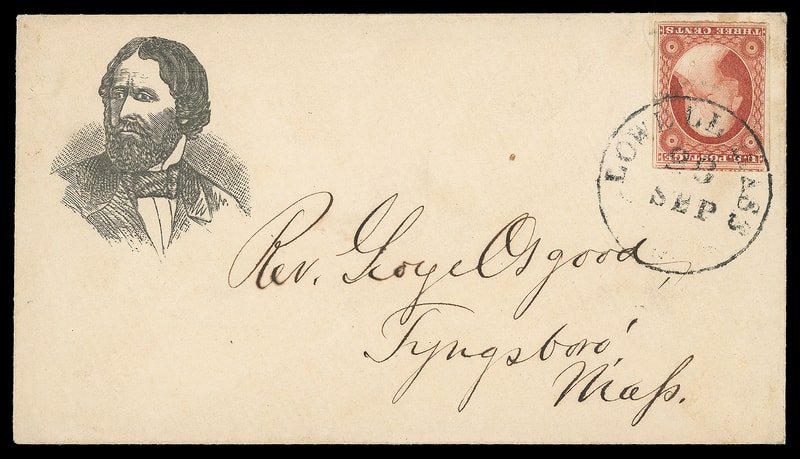 THREE CENTS
U.S. POSTAGE
LOWELL MASS
28
SEP
Rev. George Osgood,
Tyngsboro',
Mass.